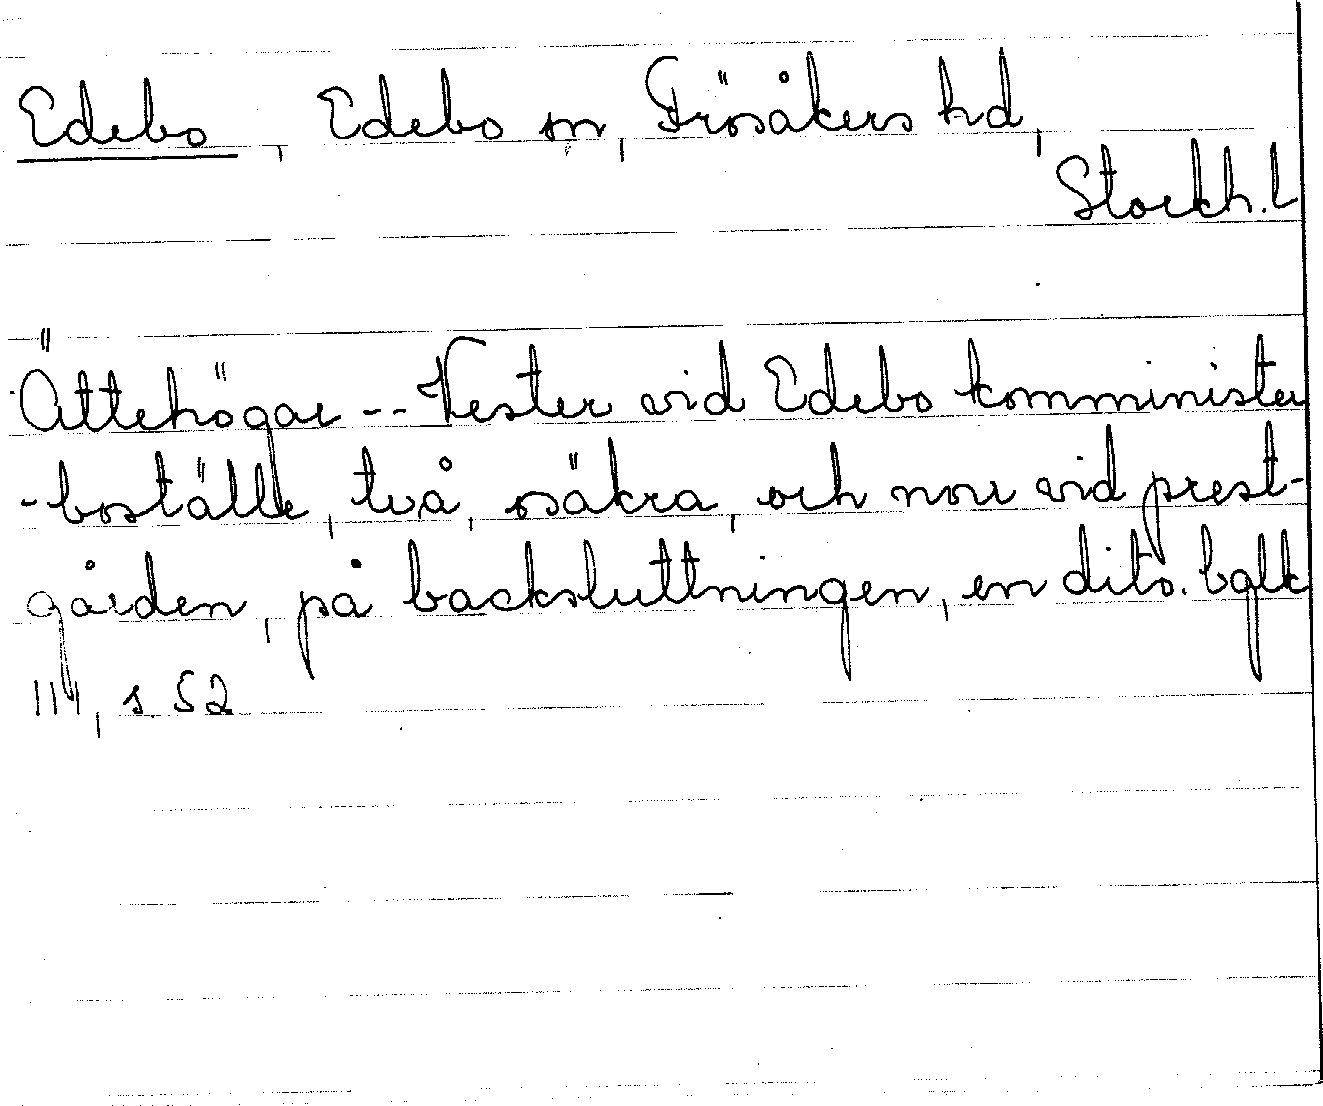 Edebo, Edebo sn, Frösåkers hd,
Stockh. l
Ättehögar -- Vester vid Edebo komminister
-boställe, två, osäkra, och norr vid prest-
gården, på backsluttningen, en dito. bglk
III, s 52